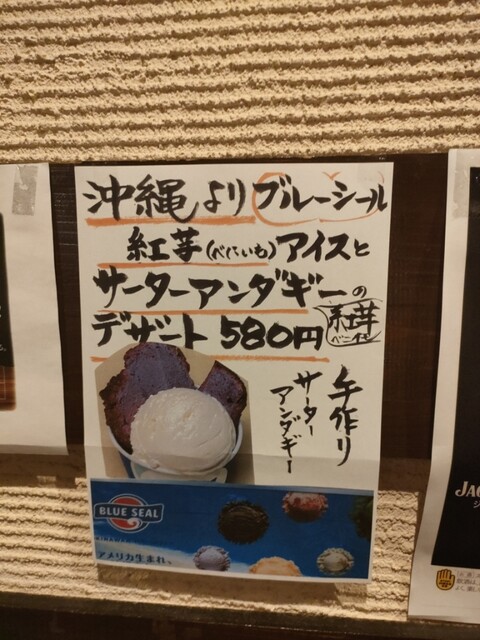 沖縄よりブルーシール
紅芋(べにいも)アイスと
サーターアンダギーの
デザート 580円
紅芋
手作り
サーター
アンダギー
BLUE SEAL
アメリカ生まれ、